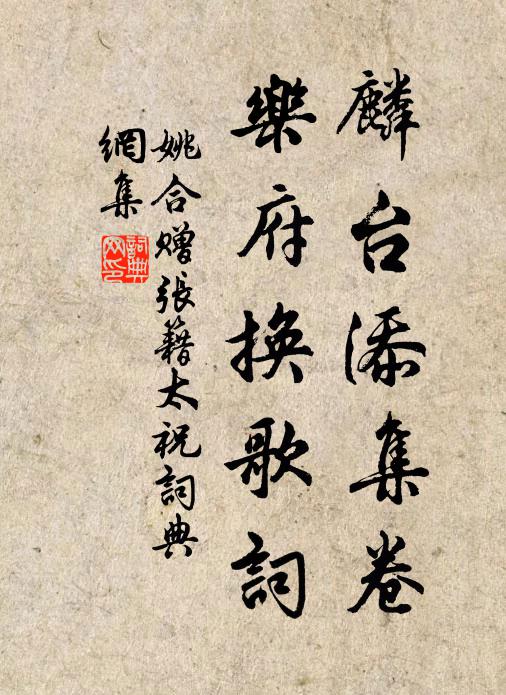 麟台添集卷
樂府換歌詞
姚合贈張籍太祝詞典
網集
詞典
网印